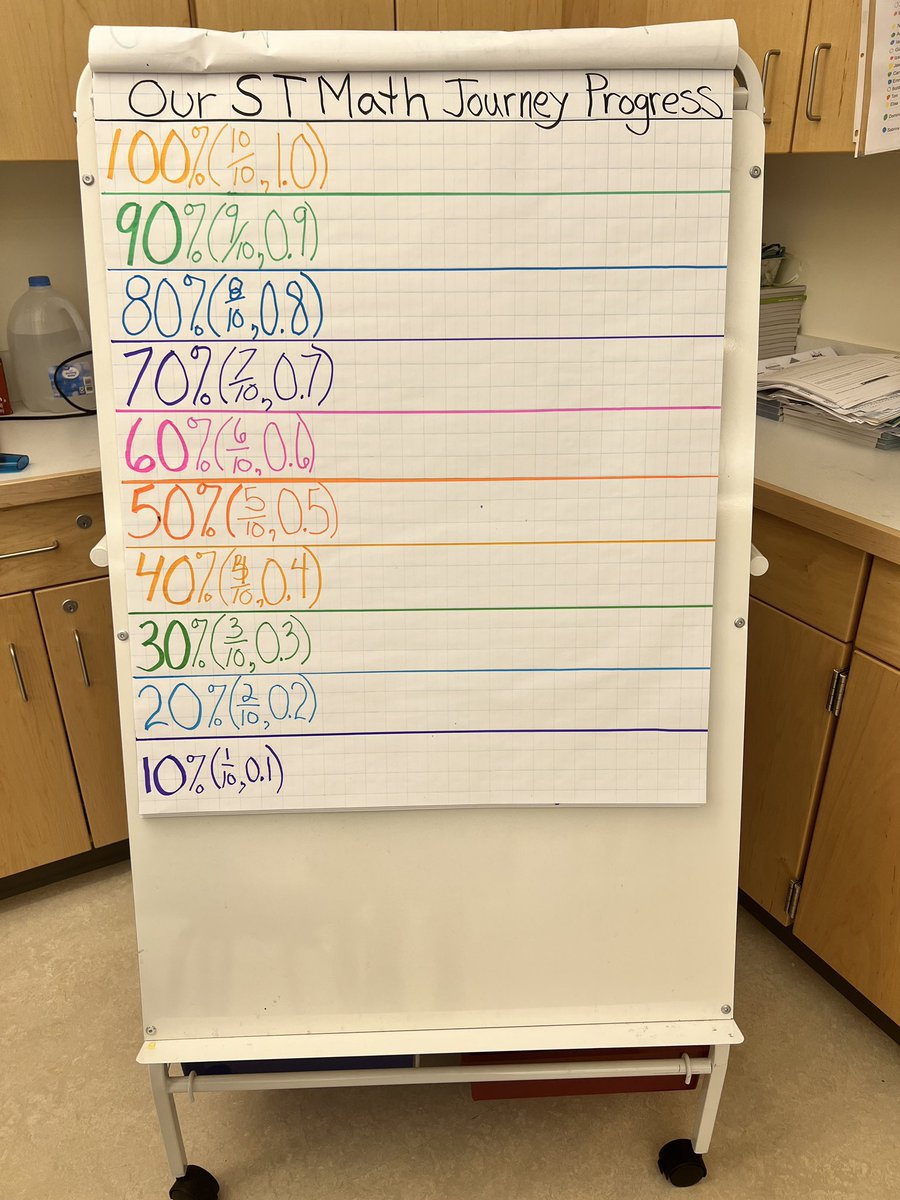 Our ST Math Journey Progress
100% (10/10, 1.0)
90% (9/10, 0.9)
80% (8/10, 0.8)
70% (7/10, 0.7)
60% (6/10, 0.6)
50% (5/10, 0.5)
40% (4/10, 0.4)
30% (3/10, 0.3)
20% (2/10, 0.2)
10% (1/10, 0.1)